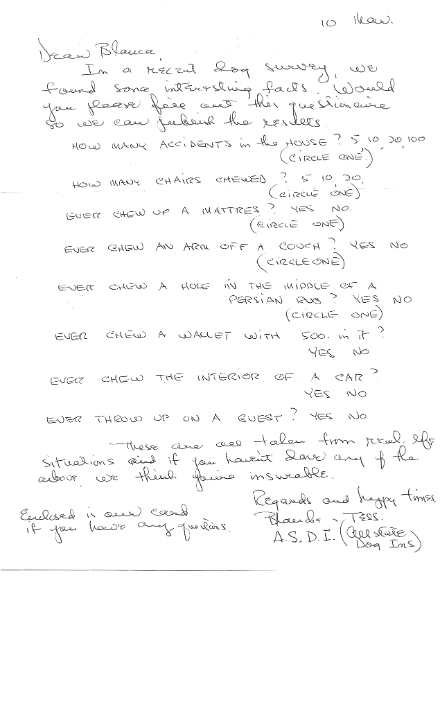 10 Nov.
Dear Blanca,
In a recent dog survey, we
found some interesting facts. Would
you please fill out this questionaire
so we can publish the results
HOW MANY ACCIDENTS in the HOUSE? 5 10 20 100
(CIRCLE ONE)
HOW MANY CHAIRS CHEWED? 5 10 20
(CIRCLE ONE)
EVER CHEW UP A MATTRES? YES NO
(CIRCLE ONE)
EVER CHEW AN ARM OFF A COUCH? YES NO
(CIRCLE ONE)
EVER CHEW A HOLE IN THE MIDDLE OF A
PERSIAN RUG? YES NO
(CIRCLE ONE)
EVER CHEW A WALLET WITH 500. in it?
YES NO
EVER CHEW THE INTERIOR OF A CAR?
YES NO
EVER THROW UP ON A GUEST? YES NO
These are all taken from real life
situations and if you haven't done any of the
above, we think you're insurable.
Regards and happy times
Enclosed is our card
if you have any questions.
Tess.
A.S.D.I. (Allstate
Dog Ins)